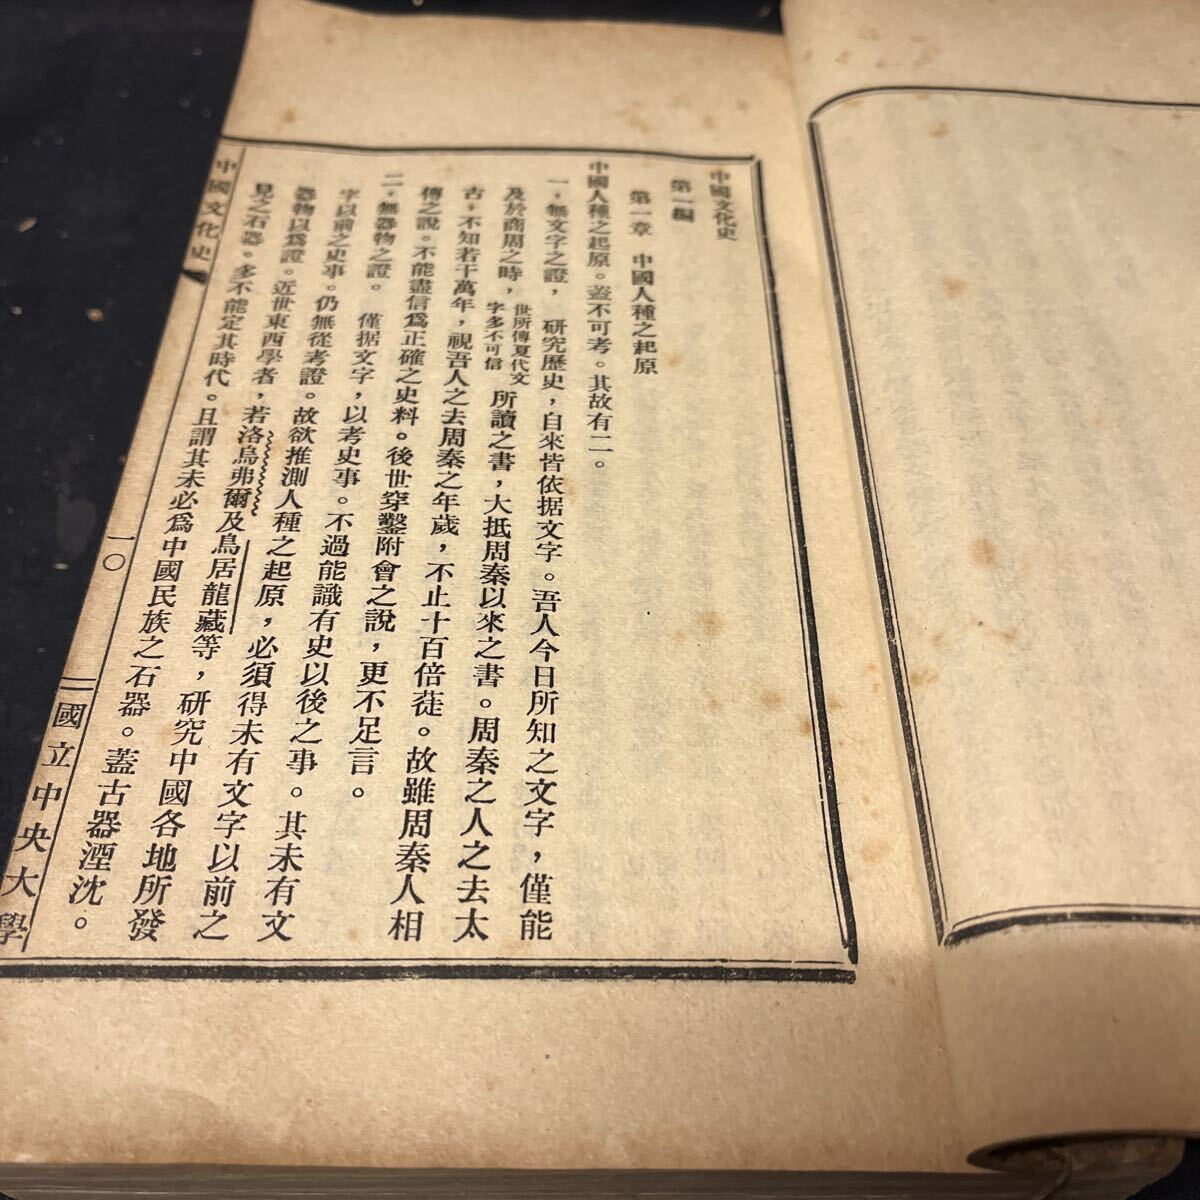 中國文化史
第一編
第一章　中國人種之起原
中國人種之起原。蓋不可考。其故有二。
一，無文字之證，　研究歷史，自來皆依据文字。吾人今日所知之文字，僅能
及於商周之時，世所傳夏代文字多不可信　所讀之書，大抵周秦以來之書。周秦之人之去太
古，不知若干萬年，視吾人之去周秦之年歲，不止十百倍蓰。故雖周秦人相
傳之說。不能盡信爲正確之史料。後世穿鑿附會之說，更不足言。
二，無器物之證。　僅据文字，以考史事。不過能識有史以後之事。其未有文
字以前之史事。仍無從考證。故欲推測人種之起原，必須得未有文字以前之
器物以爲證。近世東西學者，若洛烏弗爾及鳥居龍藏等，研究中國各地所發
見之石器。多不能定其時代。且謂其未必爲中國民族之石器。蓋古器湮沈。
中國文化史
一〇
國立中央大學